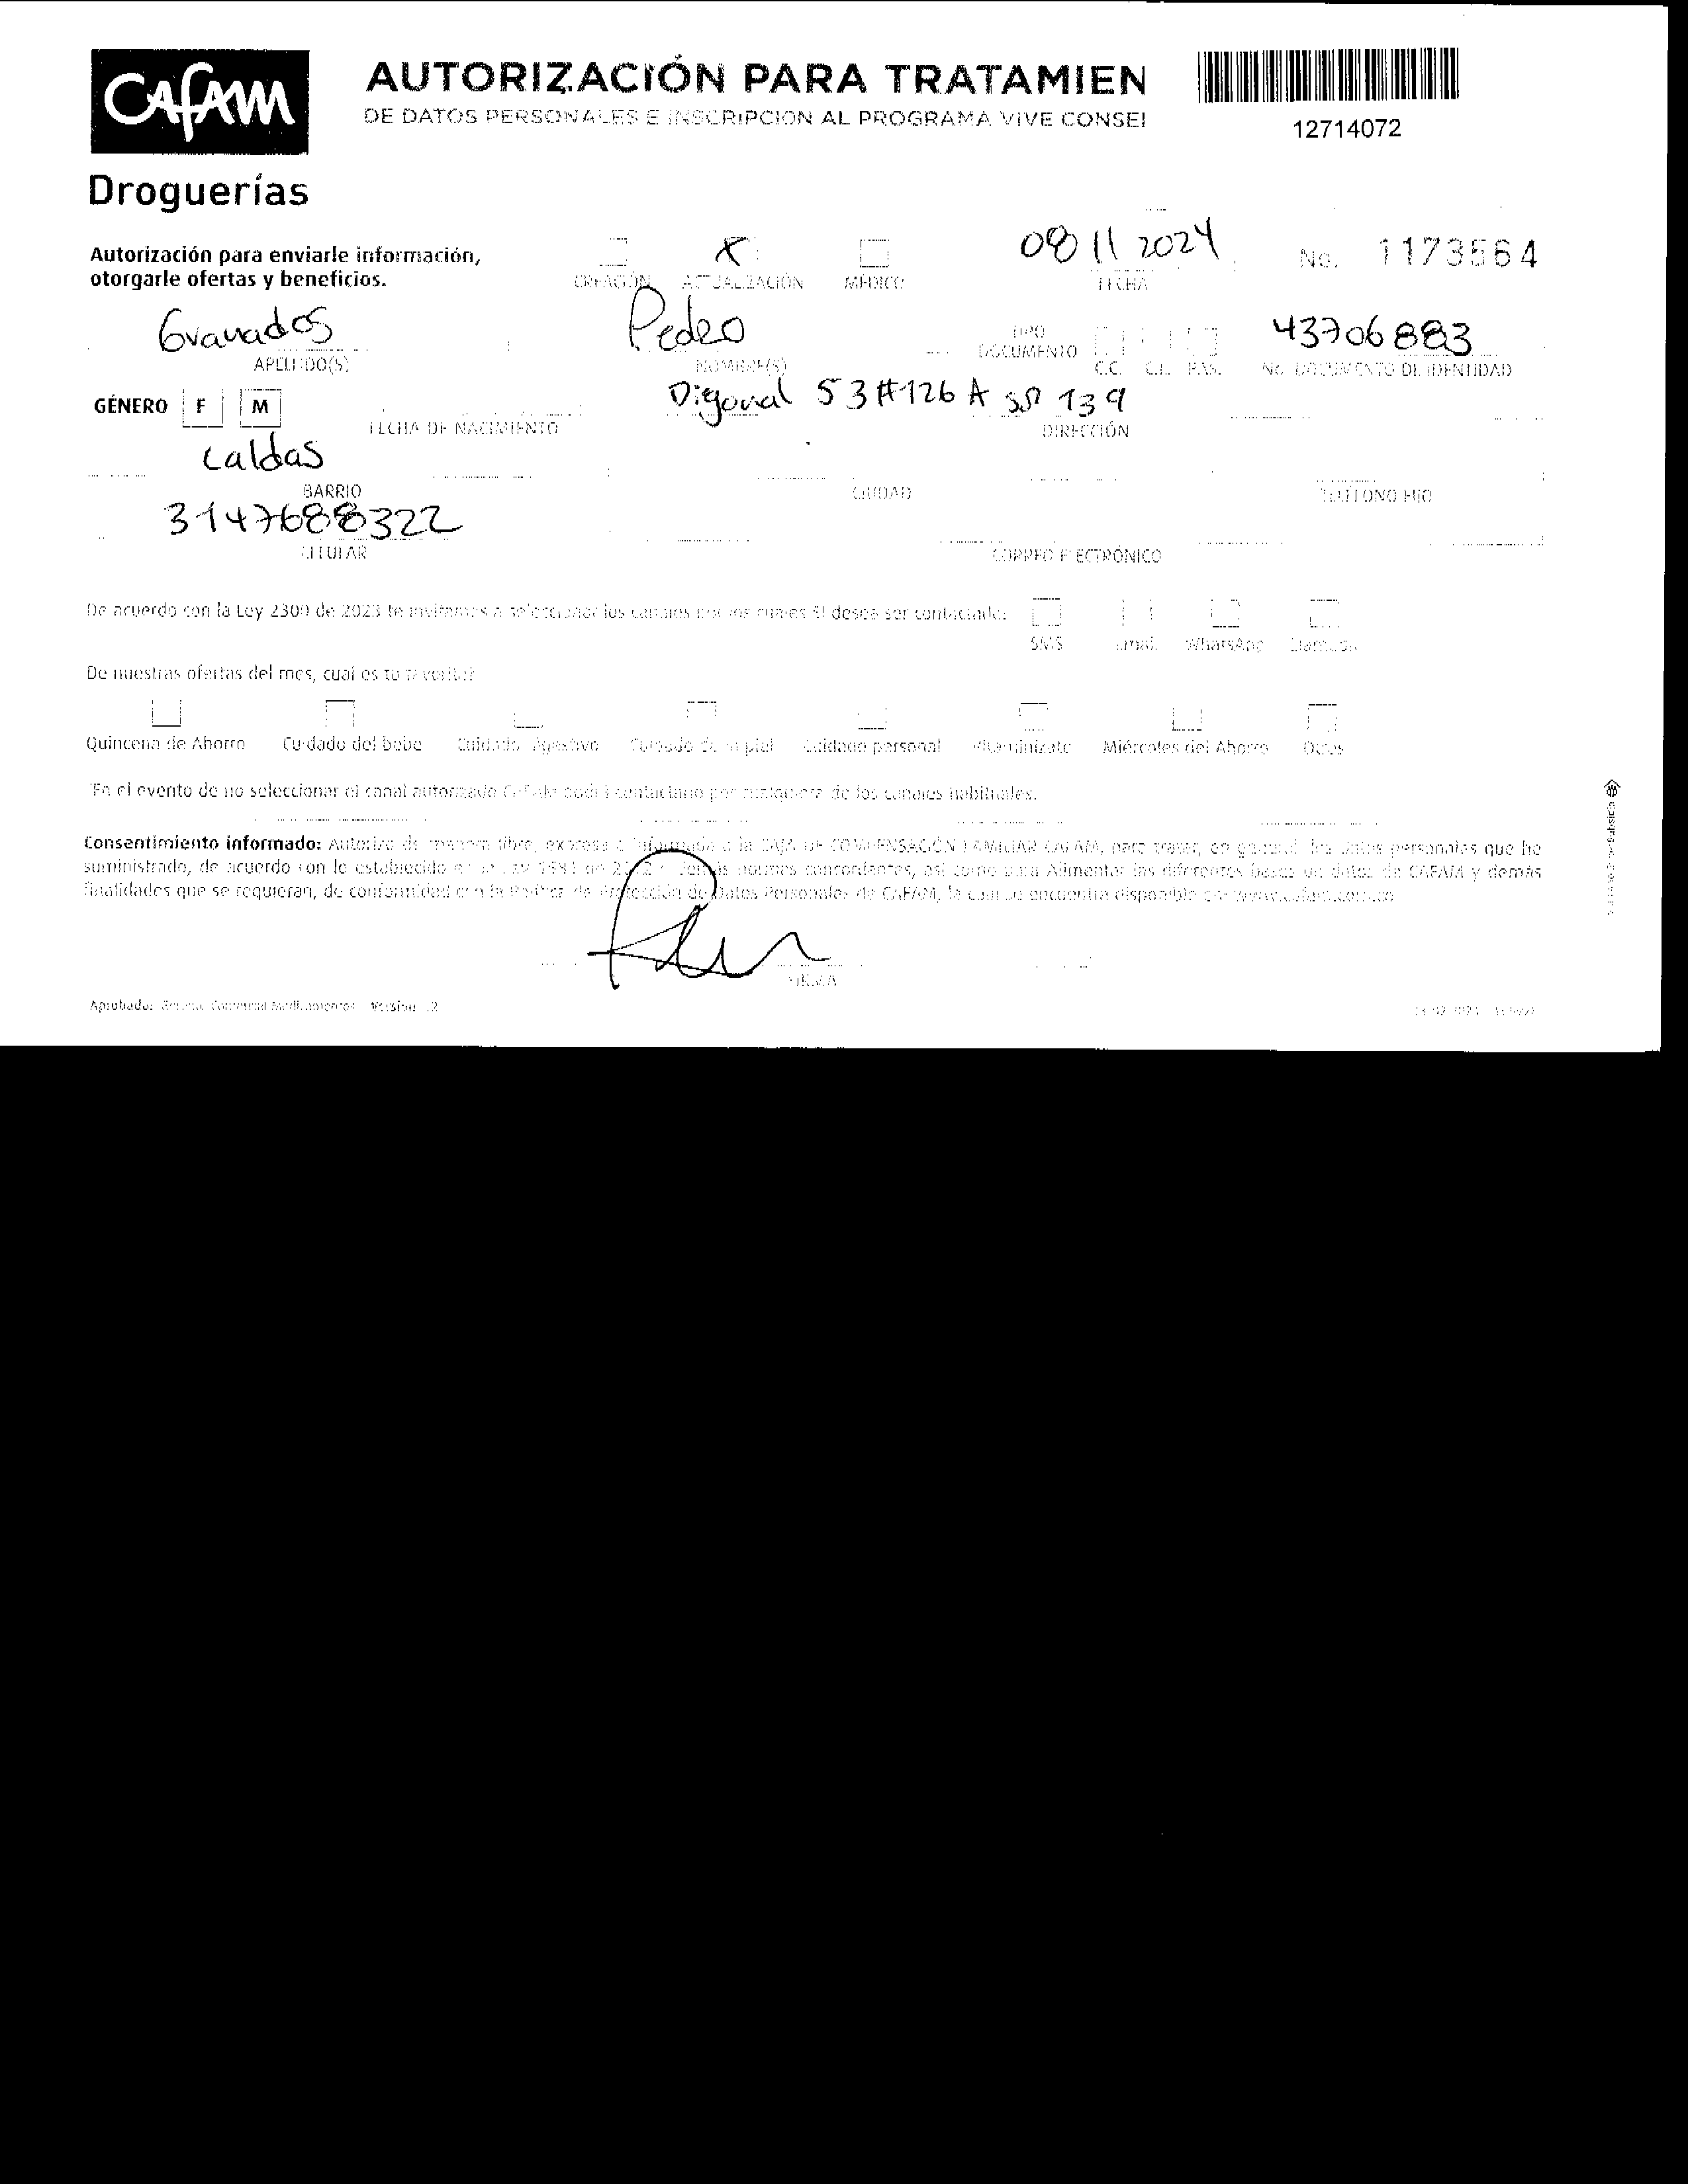 CAFAM
AUTORIZACIÓN PARA TRATAMIEN
DE DATOS PERSONALES E INSCRIPCION AL PROGRAMA VIVE CONSEI
12714072
Droguerías
Autorización para enviarle información,
otorgarle ofertas y beneficios.
X
CREACIÓN ACTUALIZACIÓN MÉDICO
08 11 2024
FECHA
No. 1173564
Granados Pedro 43706883
APELLIDO(S) NOMBRE(S) TIPO DOCUMENTO C.C. C.E. PAS. No. DOCUMENTO DE IDENTIDAD
GÉNERO F M
Digonal 53 #126 A 139
FECHA DE NACIMIENTO DIRECCIÓN
Caldas
BARRIO CIUDAD TELÉFONO FIJO
3147688322
CELULAR CORREO ELECTRÓNICO
De acuerdo con la Ley 2300 de 2023 te invitamos a seleccionar los canales por los cuales SI desea ser contactado:
SMS Email WhatsApp Llamada
De nuestras ofertas del mes, cuál es tu favorita?
Quincena de Ahorro Cuidado del bebe Cuidado digestivo Cuidado de la piel Cuidado personal Vitaminízate Miércoles del Ahorro Otros
*En el evento de no seleccionar el canal autorizado Cafam podrá contactarlo por cualquiera de los canales habituales.
Consentimiento informado: Autorizo de manera libre, expresa e informada a la CAJA DE COMPENSACIÓN FAMILIAR CAFAM, para tratar, en general los datos personales que he
suministrado, de acuerdo con lo establecido en la Ley 1581 de 2012 y demás normas concordantes, así como para Alimentar las diferentes bases de datos de CAFAM y demás
finalidades que se requieran, de conformidad con la Política de Protección de Datos Personales de CAFAM, la cual se encuentra disponible en: www.cafam.com.co
FIRMA
Aprobado: Comercial Medicamentos Versión